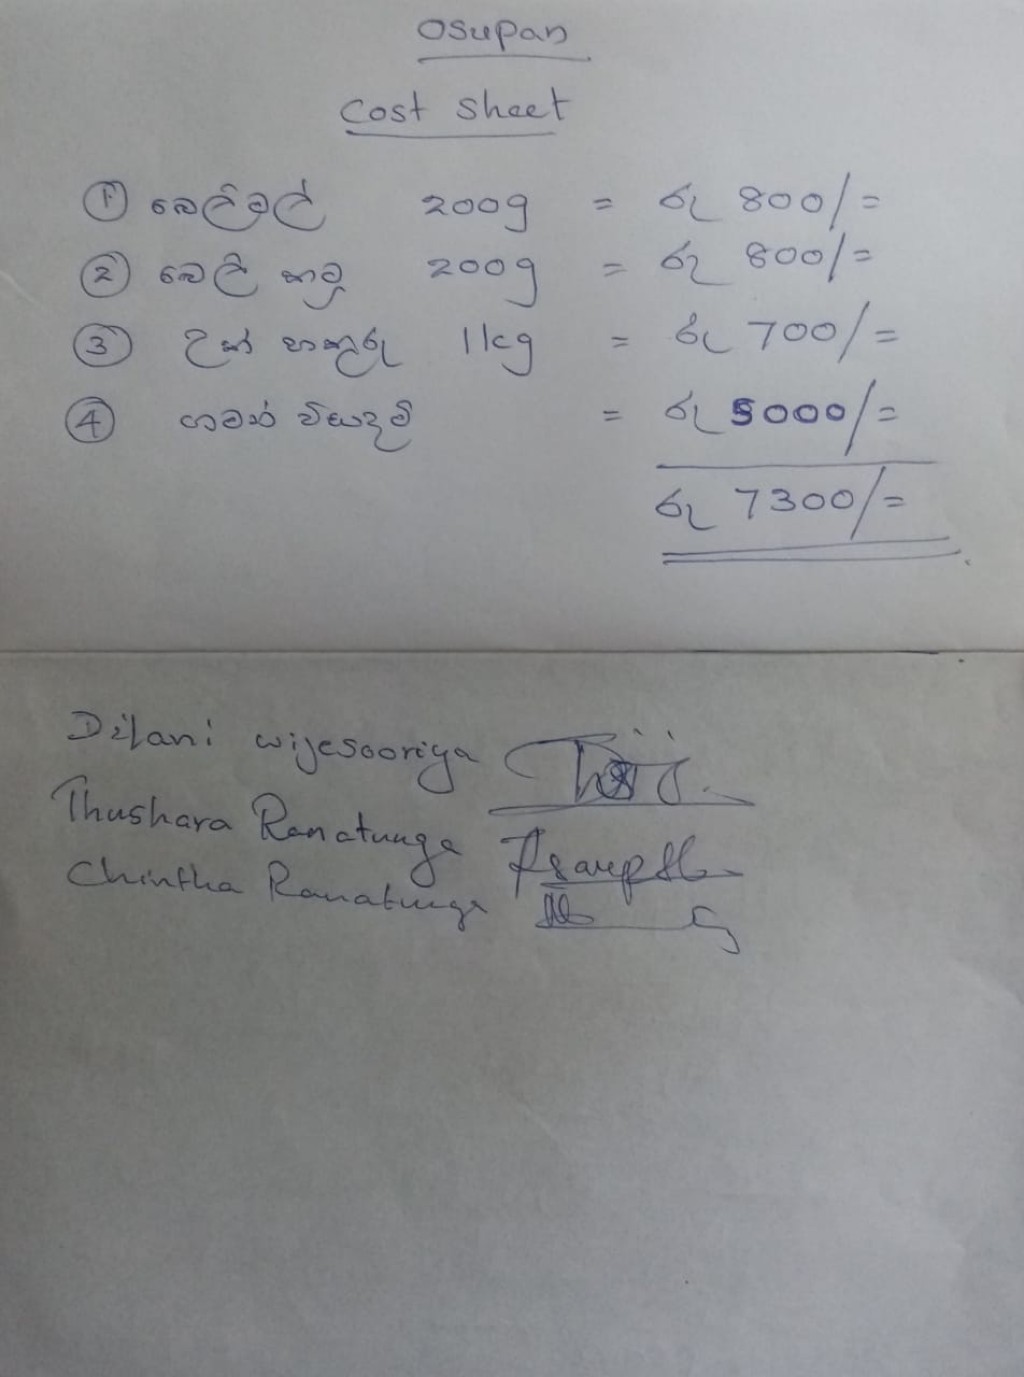 Osupan
Cost Sheet
① බෙලිමල් 200g = රු 800/=
② බෙලි කටු 200g = රු 800/=
③ උක් හකුරු 1kg = රු 700/=
④ ගමන් වියදම් = රු 5000/=
රු 7300/=
Dilani wijesooriya
Thushara Ranatunga
Chintha Ranatunga